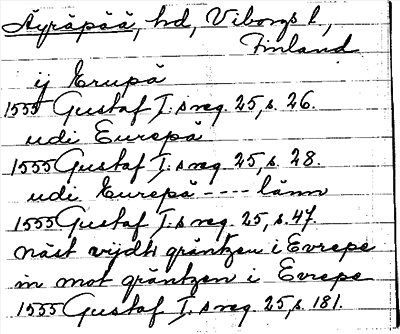 Äyräpää, hd, Viborgs l.,
Finland
ij Erupä
1555 Gustaf I:s reg. 25, s. 26.
udi Eurepä
1555 Gustaf I:s reg. 25, s. 28.
udi Eurepä ---- länn
1555 Gustaf I:s reg. 25, s. 47.
näst vijdh gräntzen i Evrepe
in mot gräntzen i Evrepe
1555 Gustaf I:s reg. 25, s. 181.